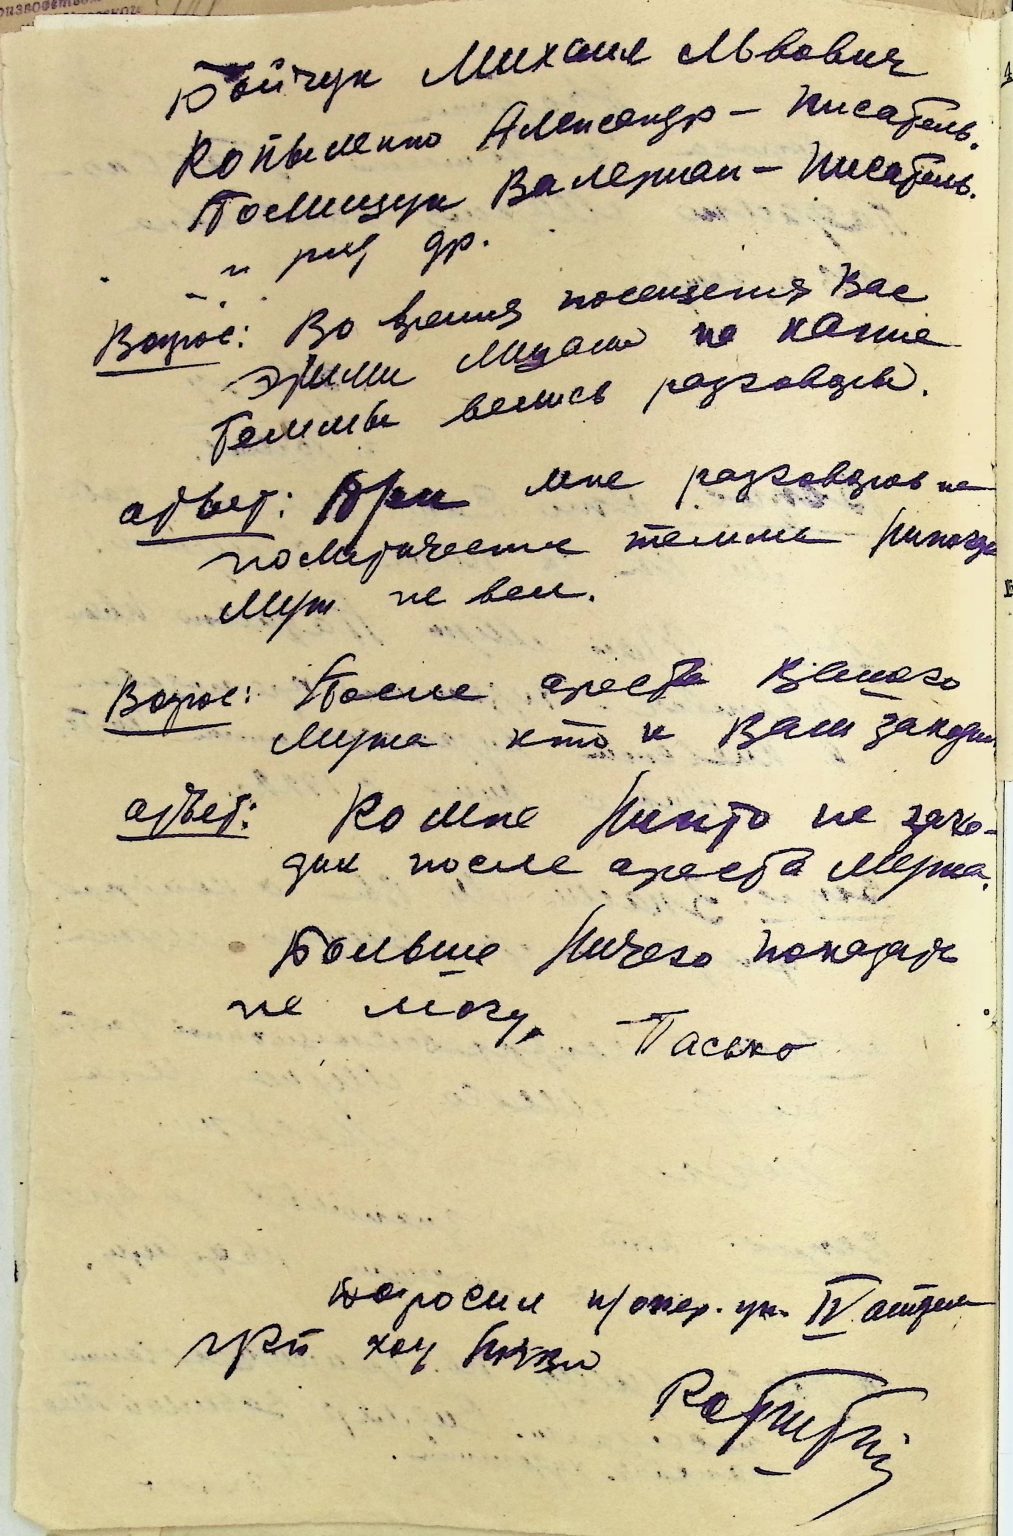 оизводство
Бойчук Михаил Львович
Копыленко Александр – Писатель.
Полищук Валериан – Писатель.
и ряд др.
Вопрос: Во время посещения Вас
этими лицами на какие
темы велись разговоры.
Ответ: При мне разговоров на
политические темы никогда
муж не вел.
Вопрос: После ареста Вашего
мужа кто к Вам заходил
Ответ: Ко мне никто не захо-
дил после ареста мужа.
Больше ничего показать
не могу. Пасько
Допросил п/опер. уп. IV отдела
ХОУ НКВД